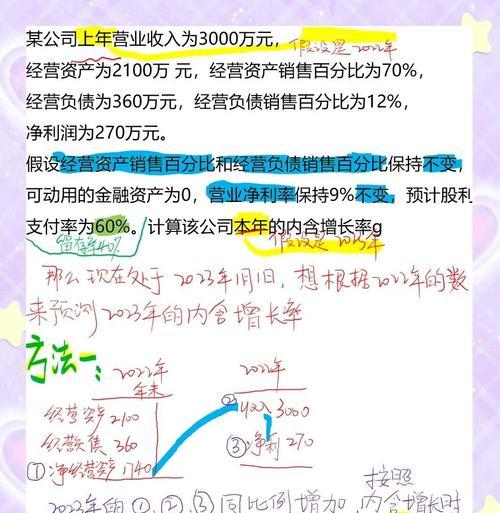 某公司上年营业收入为3000万元， 假设是2022年
经营资产为2100万 元，经营资产销售百分比为70%，
经营负债为360万元，经营负债销售百分比为12%，
净利润为270万元。
假设经营资产销售百分比和经营负债销售百分比保持不变，
可动用的金融资产为0，营业净利率保持9%不变，预计股利
支付率为60%。计算该公司本年的内含增长率g
留存率40% 假设是2023年
那么现在处于2023年1月1日，想根据2022年的数
来预测2023年的内含增长率
方法一：
2022年 2022年
年末
经营资产 2100 ② 收入 3000
经营负债 360 ③ 净利 270
① 净经营资产 1740
按照
2023年的①、②、③同比例增加，内含增长时